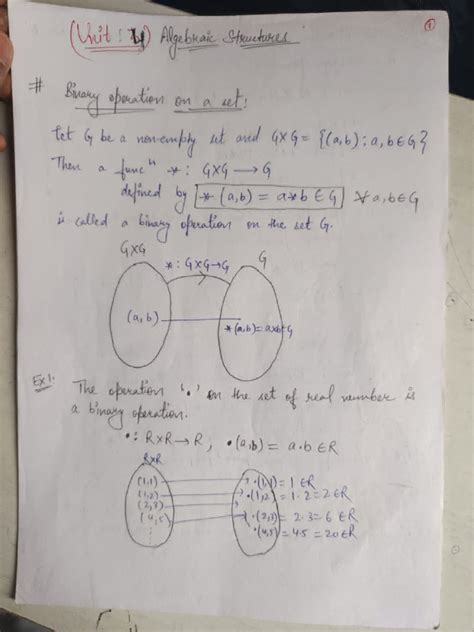 (Unit: 4) Algebraic Structures
①
# Binary operation on a set:
Let G be a non-empty set and G×G = {(a,b) : a, b ∈ G}
Then a funcⁿ * : G×G → G
defined by *(a,b) = a*b ∈ G ∀ a,b ∈ G
is called a binary operation on the set G.
G×G
* : G×G→G
G
(a,b)
*(a,b) = a*b∈G
Ex1:
The operation '·' on the set of real number is
a binary operation.
• : R×R → R , •(a,b) = a·b ∈R
R×R
(1,1)
•(1,1) = 1 ∈R
(1,2)
•(1,2) = 1·2 = 2 ∈R
(2,3)
•(2,3) = 2·3 = 6 ∈R
(4,5)
•(4,5) = 4·5 = 20 ∈R